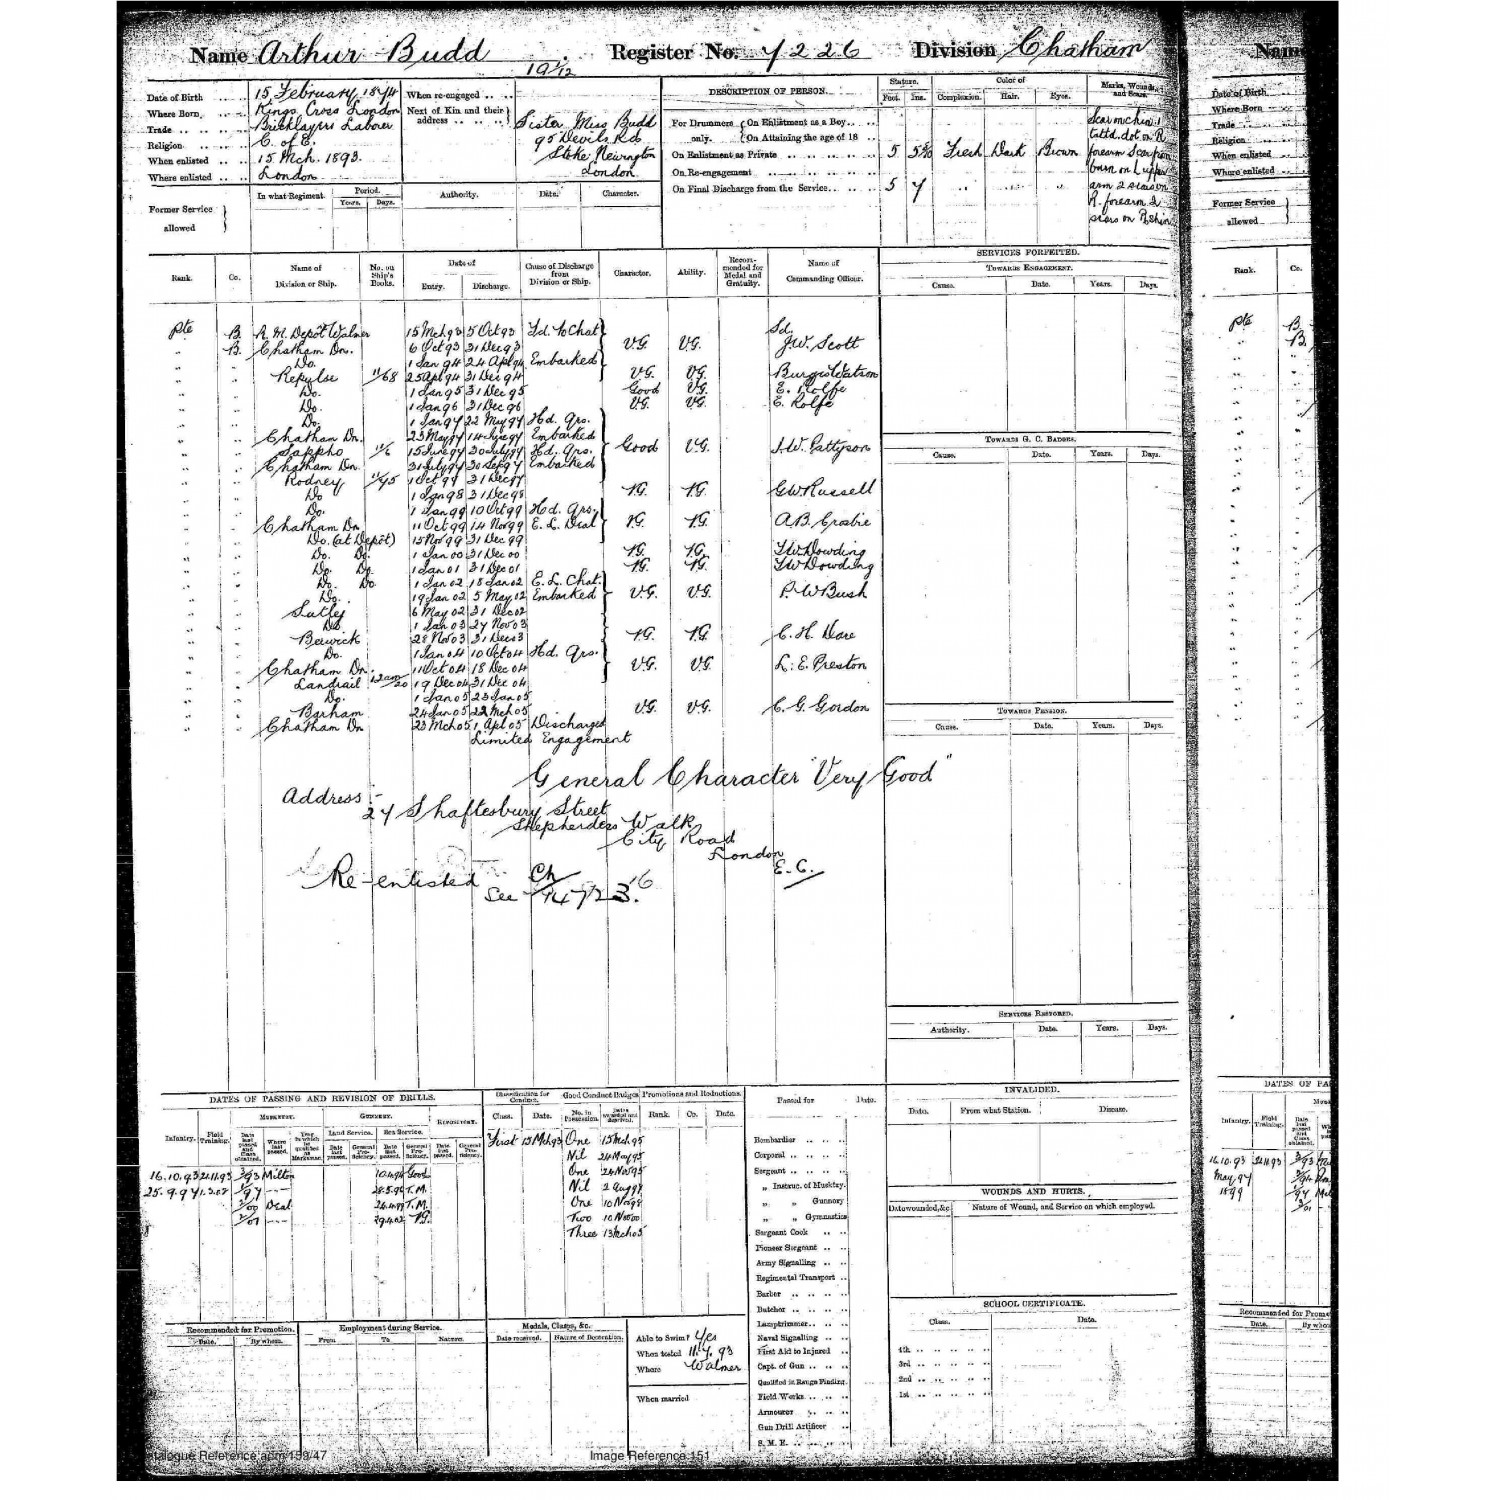 Name Arthur Budd Register No. 7226 Division Chatham
19 1/12
Date of Birth 15 February 1874 When re-engaged
Where Born, Kings Cross London Next of Kin and their address Sister Miss Budd
Trade Bricklayers Laborer 95 Devils Rd
Religion C. of E. Stoke Newington
When enlisted 15 Mch. 1893. London
Where enlisted London
DESCRIPTION OF PERSON.
Stature. Color of Marks, Wounds, and Scars.
Feet. Ins. Complexion. Hair. Eyes.
For Drummers only. On Enlistment as a Boy
On Attaining the age of 18
On Enlistment as Private 5 Fresh Dark Brown
On Re-engagement
On Final Discharge from the Service 5 7 " " "
tattd. dot on R
forearm
burn on L upper
arm 2 scars on
R. forearm 2
scars on R. shin
Former Service allowed In what Regiment. Period. Years. Days. Authority. Date. Character.
Rank. Co. Name of Division or Ship. No. on Ship's Books. Date of Entry. Discharge. Cause of Discharge from Division or Ship. Character. Ability. Recommended for Medal and Gratuity. Name of Commanding Officer.
Pte B. R. M. Depôt Walmer 15 Mch 93 5 Oct 93 Td. to Chat Sd.
" B. Chatham Dn. 6 Oct 93 31 Dec 93 V.G. V.G. J.W. Scott
" " Do. 1 Jan 94 24 Apl 94 Embarked
" " Repulse 11/68 25 Apl 94 31 Dec 94 V.G. V.G. Burges Watson
" " Do. 1 Jan 95 31 Dec 95 Good V.G. E. Rolfe
" " Do. 1 Jan 96 31 Dec 96 V.G. V.G. E. Rolfe
" " Do. 1 Jan 97 22 May 97 Hd. Qrs.
" " Chatham Dn. 23 May 97 14 June 97 Embarked
" " Sappho 11/6 15 June 97 30 July 97 Hd. Qrs. Good V.G. J.W. Pattyson
" " Chatham Dn. 31 July 97 30 Sep 97 Embarked
" " Rodney 1 Oct 97 31 Dec 97
" " Do 1 Jan 98 31 Dec 98 V.G. V.G. G W Russell
" " Do. 1 Jan 99 10 Oct 99 Hd. Qrs.
" " Chatham Dn. 11 Oct 99 14 Nov 99 E. L. Deal V.G. V.G. A.B. Crosbie
" " Do. (at Depôt) 15 Nov 99 31 Dec 99
" " Do. Do. 1 Jan 00 31 Dec 00 V.G. V.G. T.W. Dowding
" " Do. Do. 1 Jan 01 31 Dec 01 V.G. V.G. T.W. Dowding
" " Do. Do 1 Jan 02 18 Jan 02 E. L. Chat.
" " Do. 19 Jan 02 5 May 02 Embarked V.G. V.G. P. W Bush
" " Sutlej 6 May 02 31 Dec 02
" " Do 1 Jan 03 27 Nov 03
" " Berwick 28 Nov 03 31 Dec 03 V.G. V.G. C. H. Dare
" " Do. 1 Jan 04 10 Oct 04 Hd. Qrs.
" " Chatham Dn. 11 Oct 04 18 Dec 04 V.G. V.G. L. E. Preston
" " Landrail 19 Dec 04 31 Dec 04
" " Do. 1 Jan 05 23 Jan 05
" " Barham 24 Jan 05 22 Mch 05 V.G. V.G. C. G. Gordon
" " Chatham Dn 23 Mch 05 1 Apl 05 Discharged
Limited Engagement
General Character "Very Good"
Address :-
27 Shaftesbury Street
Shepherdess Walk
City Road
London
E. C.
Re-enlisted See Ch/14723.
SERVICES FORFEITED.
TOWARDS ENGAGEMENT.
Cause. Date. Years. Days.
TOWARDS G. C. BADGES.
Cause. Date. Years. Days.
TOWARDS PENSION.
Cause. Date. Years. Days.
SERVICES RESTORED.
Authority. Date. Years. Days.
DATES OF PASSING AND REVISION OF DRILLS.
Infantry. Field Training. MUSKETRY. Where last passed. GUNNERY. Land Service. Sea Service.
16.10.93 Milton Good
25.9.97 28.5.96 T.M.
Deal T.M.
29.4.02 V.G.
Classification for Conduct. Class. Date.
First 15 Mch 93
Good Conduct Badges No. in Possession.
One 15 Mch 95
Nil 24 May 95
One 24 Nov 95
Nil 2 Aug 97
One 10 Nov 98
Two 10 Nov 00
Three 13 Mch 05
Promotions and Reductions. Rank. Co. Date.
Passed for Date.
Bombardier
Corporal
Sergeant
" Instruc. of Musktry.
" " Gunnery
" " Gymnastics
Sergeant Cook
Pioneer Sergeant
Army Signalling
Regimental Transport
Barber
Butcher
Lamptrimmer
Naval Signalling
First Aid to Injured
Capt. of Gun
Qualified in Range Finding.
Field Works
Armourer
Gun Drill Artificer
S. M. E.
INVALIDED.
Date. From what Station. Disease.
WOUNDS AND HURTS.
Date wounded, &c Nature of Wound, and Service on which employed.
SCHOOL CERTIFICATE.
Class. Date.
4th
3rd
2nd
1st
Recommended for Promotion. Date. By whom.
Employment during Service. From To Nature.
Medals, Clasps, &c. Date received. Nature of Decoration.
Able to Swim? Yes
When tested 11.7.93
Where Walmer
When married
Image Reference:151